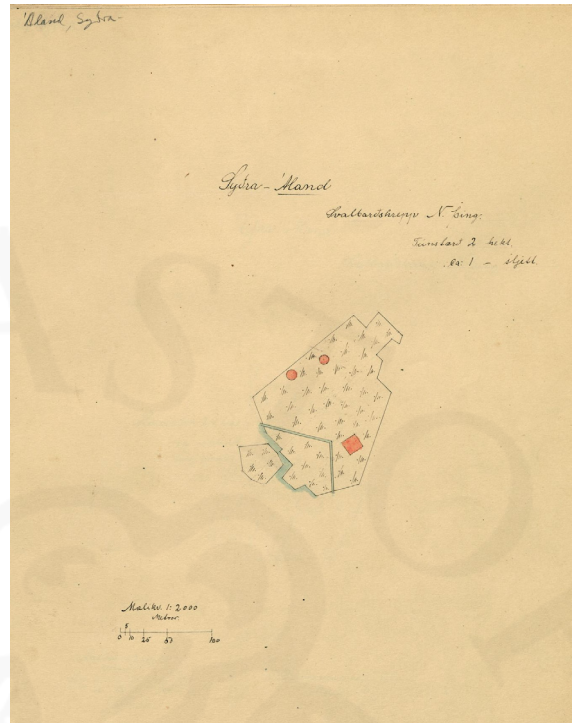 Áland, Syðra-
Syðra-Áland
Svalbarðshrepp N. Þing.
Túnstærð 2 hekt.
ca: 1 - slétt.
Mælikv. 1:2000
Metrar.
5
0 10 25 50 100